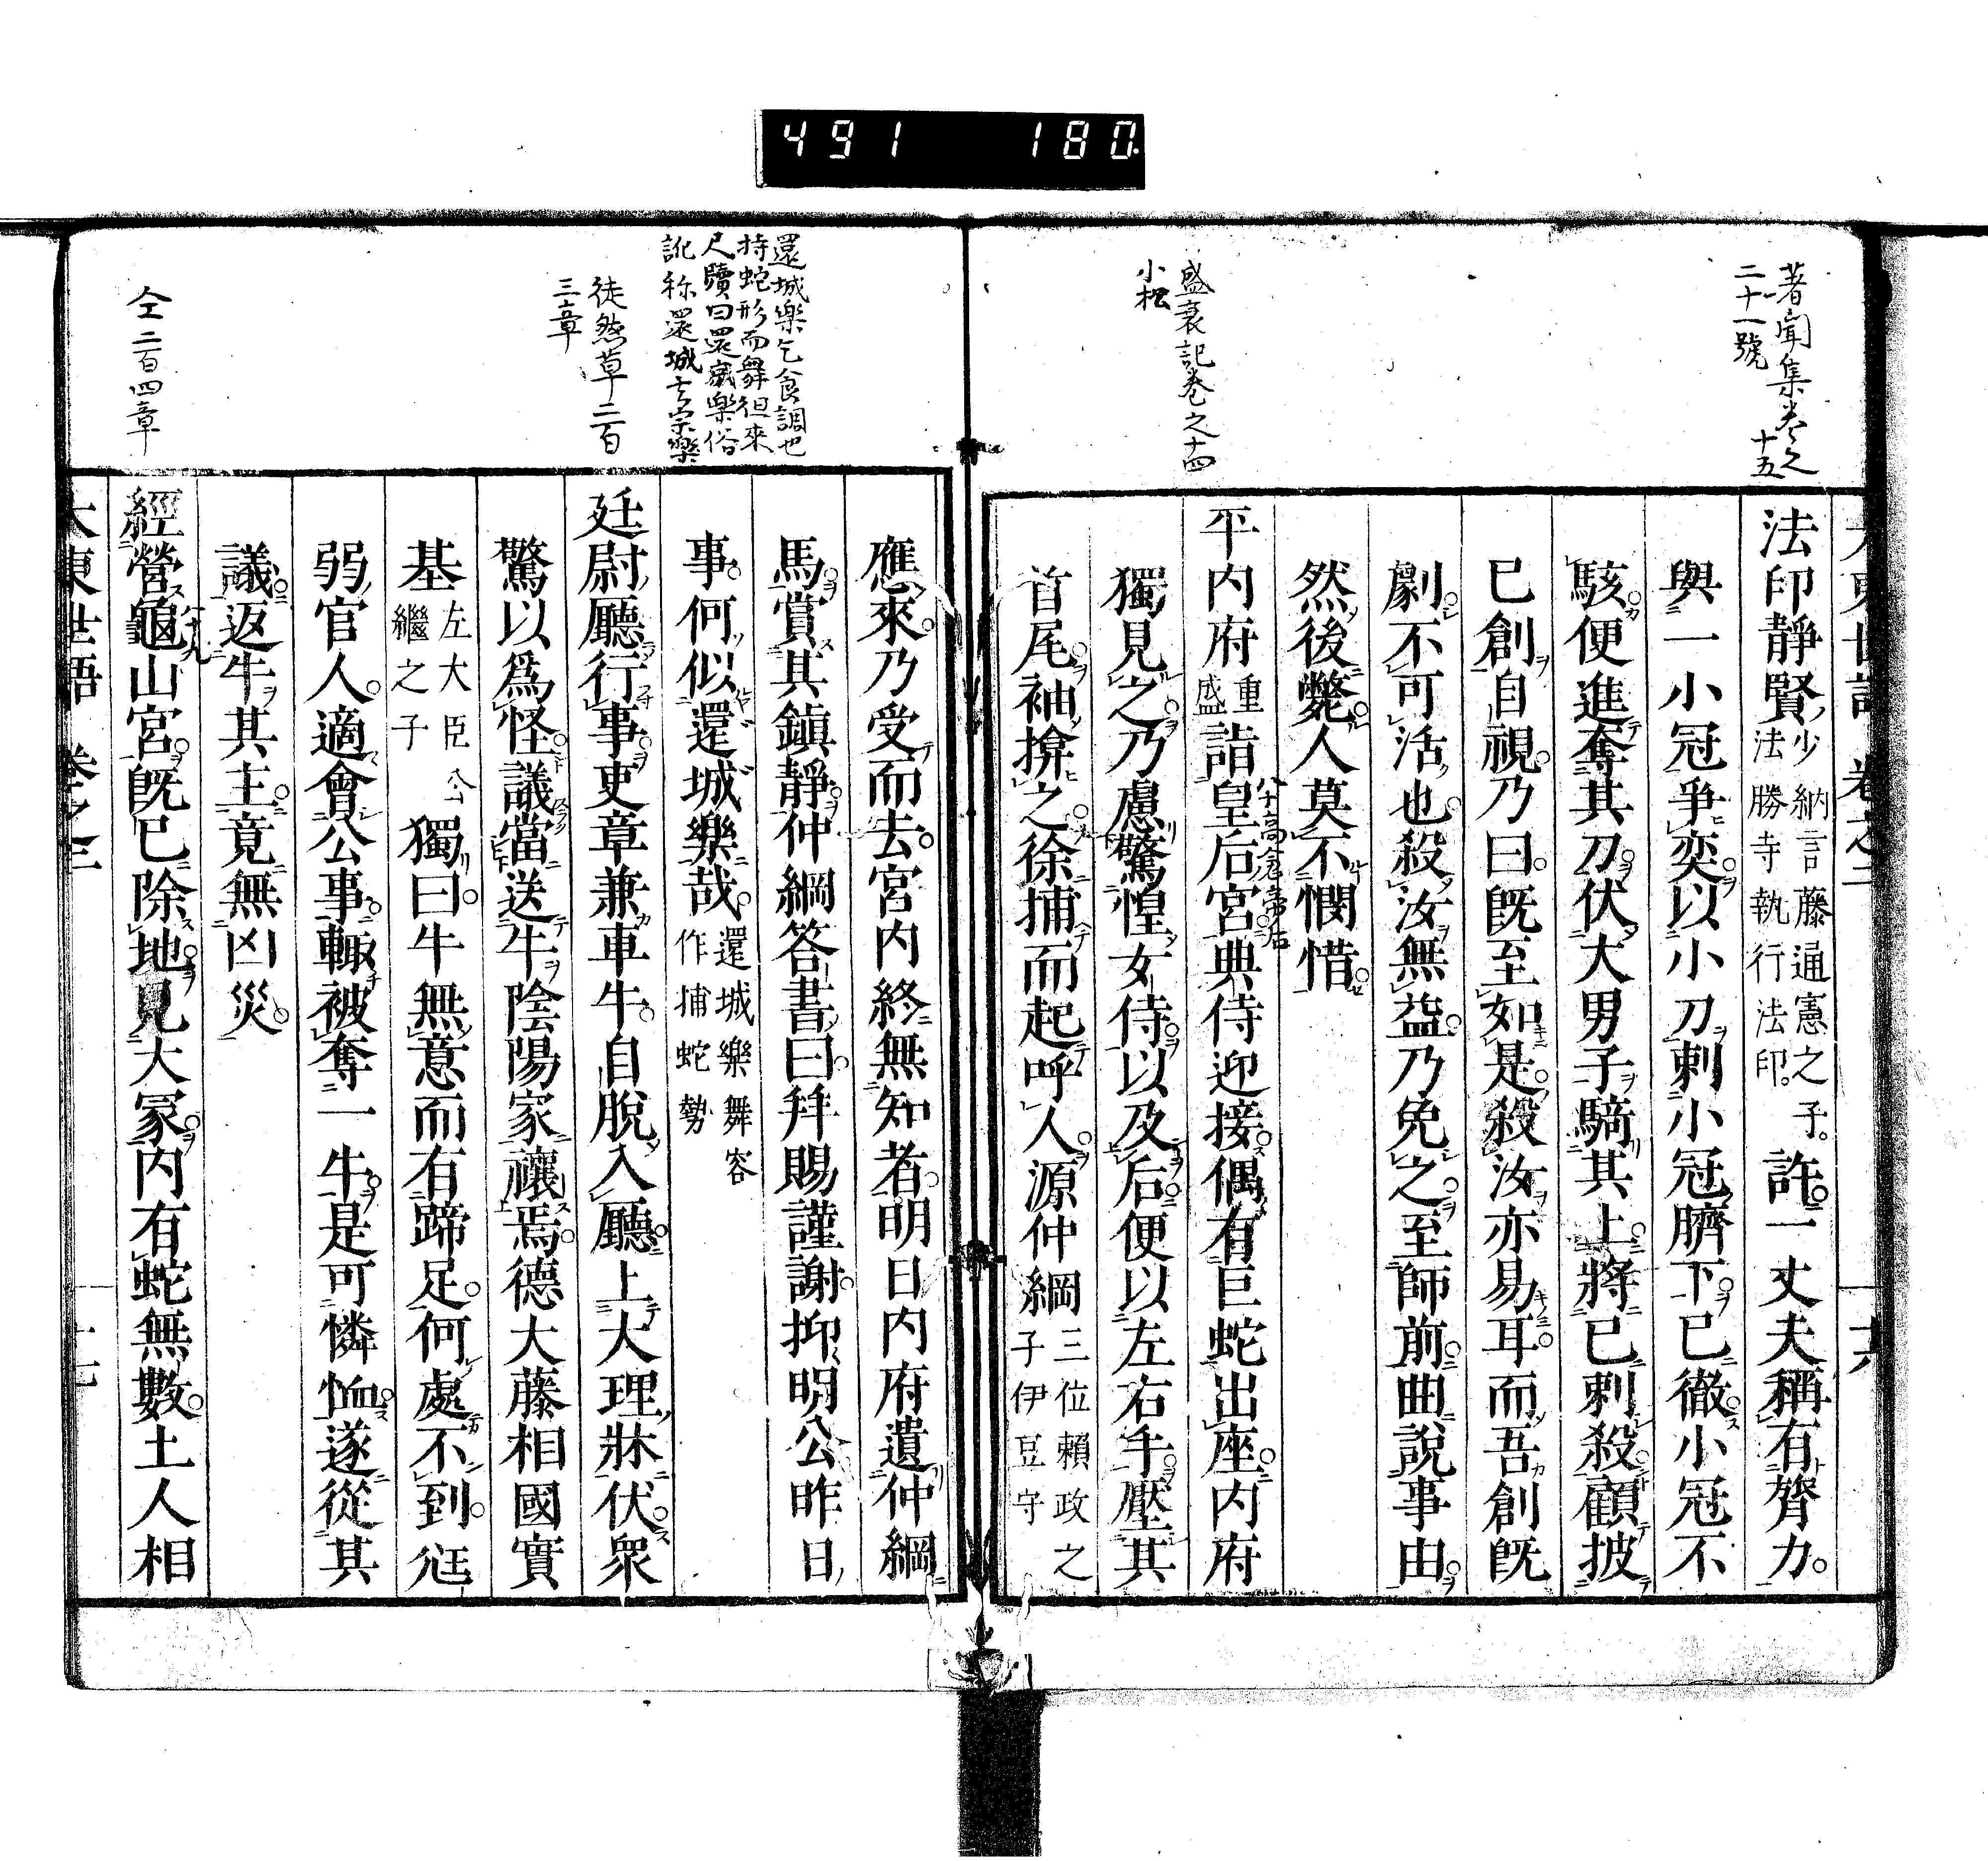 491 180
著聞集卷之十五
二十一號
盛衰記卷之十四
小松
大東世語 卷之二 十六
法印靜賢少納言藤通憲之子。法勝寺執行法印。許一丈夫稱有膂力。
與一小冠爭奕以小刀刺小冠臍下已徹小冠不
駭便進奪其刀伏大男子騎其上將已刺殺顧披
已創自視乃曰既至如是殺汝亦易耳而吾創既
劇不可活也殺汝無益乃免之至師前曲說事由
然後斃人莫不憫惜
平內府重盛詣皇后宮典侍迎接偶有巨蛇出座內府
八十高倉帝后
獨見之乃慮驚惶女侍以及后便以左右手壓其
首尾袖揜之徐捕而起呼人源仲綱三位賴政之子伊豆守
還城樂乞食調也
持蛇形而舞徂來
尺牘曰還城樂俗
訛称還城宗樂
徒然草二百
三章
仝二百四章
應來乃受而去宮內終無知者明日內府遺仲綱
馬賞其鎮靜仲綱答書曰拜賜謹謝抑明公昨日
事何似還城樂哉還城樂舞容作捕蛇勢
廷尉廳行事吏章兼車牛自脫入廳上大理牀伏衆
驚以爲怪議當送牛陰陽家禳焉德大藤相國實
基左大臣公繼之子獨曰牛無意而有蹄足何處不到尫
弱官人適會公事輙被奪一牛是可憐恤遂從其
議返牛其主竟無凶災
經營龜山宮既已除地見大冢內有蛇無數土人相
八十九
大東世語 卷之二 十七